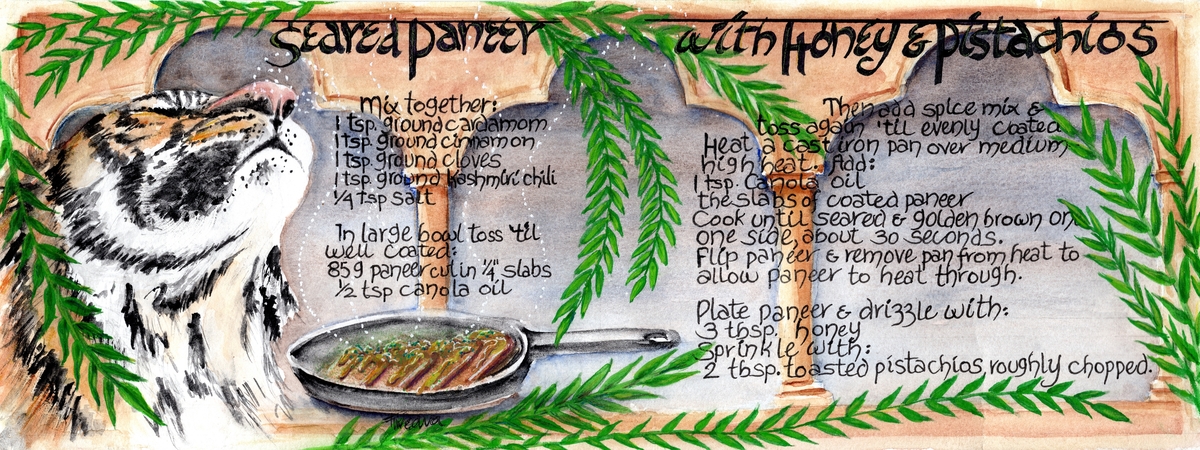 Seared Paneer with Honey & Pistachios
Mix together:
1 tsp. ground cardamom
1 tsp. ground cinnamon
1 tsp. ground cloves
1 tsp. ground Kashmiri chili
1/4 tsp salt
In large bowl toss 'til
well coated:
85g paneer cut in 1/4" slabs
1/2 tsp canola oil
Then add spice mix &
toss again 'til evenly coated
Heat a cast iron pan over medium
high heat. Add:
1 tsp. Canola oil
the slabs of coated paneer
Cook until seared & golden brown on
one side, about 30 seconds.
Flip paneer & remove pan from heat to
allow paneer to heat through.
Plate paneer & drizzle with:
3 tbsp. honey
Sprinkle with:
2 tbsp. toasted pistachios, roughly chopped.